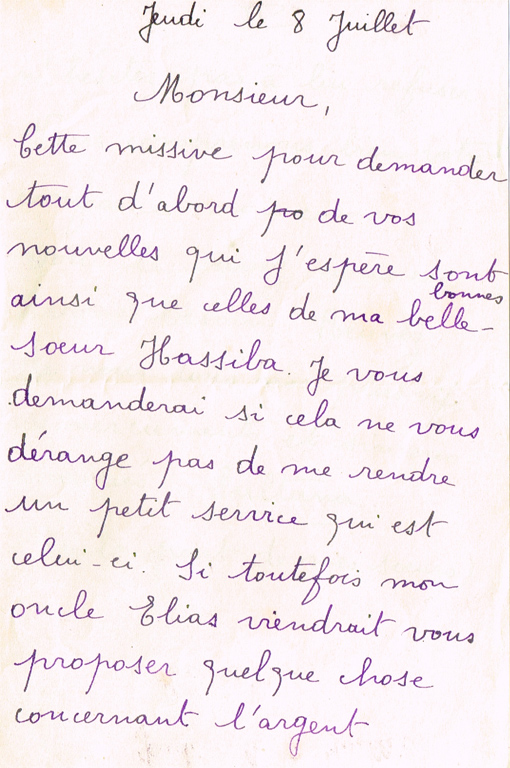 Jeudi le 8 Juillet
Monsieur,
Cette missive pour demander
tout d'abord po de vos
nouvelles qui j'espère sont
bonnes
ainsi que celles de ma belle-
soeur Hassiba. Je vous
demanderai si cela ne vous
dérange pas de me rendre
un petit service qui est
celui-ci. Si toutefois mon
oncle Elias viendrait vous
proposer quelque chose
concernant l'argent